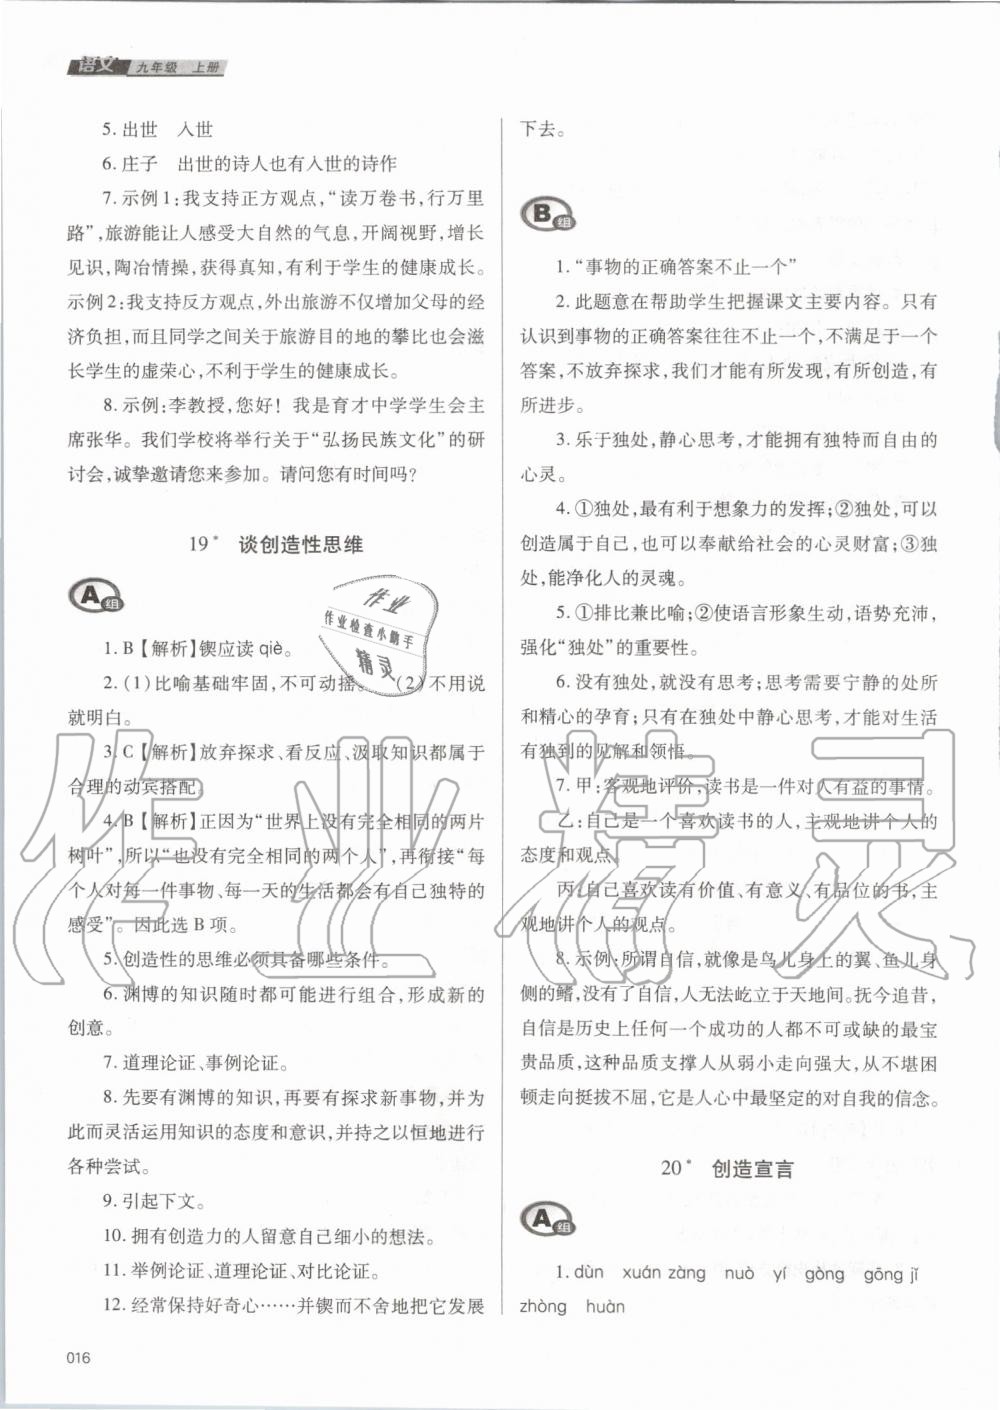 语文 九年级 上册
5. 出世　入世
6. 庄子　出世的诗人也有入世的诗作
7. 示例1:我支持正方观点,“读万卷书,行万里
路”,旅游能让人感受大自然的气息,开阔视野,增长
见识,陶冶情操,获得真知,有利于学生的健康成长。
示例2:我支持反方观点,外出旅游不仅增加父母的经
济负担,而且同学之间关于旅游目的地的攀比也会滋
长学生的虚荣心,不利于学生的健康成长。
8. 示例:李教授,您好！我是育才中学学生会主
席张华。我们学校将举行关于“弘扬民族文化”的研
讨会,诚挚邀请您来参加。请问您有时间吗?
19* 谈创造性思维
A组
1. B【解析】锲应读qiè。
2. (1)比喻基础牢固,不可动摇。　(2)不用说
就明白。
3. C【解析】放弃探求、看反应、汲取知识都属于
合理的动宾搭配。
4. B【解析】正因为“世界上没有完全相同的两片
树叶”,所以“也没有完全相同的两个人”,再衔接“每
个人对每一件事物、每一天的生活都会有自己独特的
感受”。因此选B项。
5. 创造性的思维必须具备哪些条件。
6. 渊博的知识随时都可能进行组合,形成新的
创意。
7. 道理论证、事例论证。
8. 先要有渊博的知识,再要有探求新事物,并为
此而灵活运用知识的态度和意识,并持之以恒地进行
各种尝试。
9. 引起下文。
10. 拥有创造力的人留意自己细小的想法。
11. 举例论证、道理论证、对比论证。
12. 经常保持好奇心……并锲而不舍地把它发展
下去。
B组
1. “事物的正确答案不止一个”
2. 此题意在帮助学生把握课文主要内容。只有
认识到事物的正确答案往往不止一个,不满足于一个
答案,不放弃探求,我们才能有所发现,有所创造,有
所进步。
3. 乐于独处,静心思考,才能拥有独特而自由的
心灵。
4. ①独处,最有利于想象力的发挥;②独处,可以
创造属于自己,也可以奉献给社会的心灵财富;③独
处,能净化人的灵魂。
5. ①排比兼比喻;②使语言形象生动,语势充沛,
强化“独处”的重要性。
6. 没有独处,就没有思考;思考需要宁静的处所
和精心的孕育;只有在独处中静心思考,才能对生活
有独到的见解和领悟。
7. 甲:客观地评价,读书是一件对人有益的事情。
乙:自己是一个喜欢读书的人,主观地讲个人的
态度和观点。
丙:自己喜欢读有价值、有意义、有品位的书,主
观地讲个人的观点。
8. 示例:所谓自信,就像是鸟儿身上的翼、鱼儿身
侧的鳍,没有了自信,人无法屹立于天地间。抚今追昔,
自信是历史上任何一个成功的人都不可或缺的最宝
贵品质,这种品质支撑人从弱小走向强大,从不堪困
顿走向挺拔不屈,它是人心中最坚定的对自我的信念。
20* 创造宣言
A组
1. dùn　xuán zàng　nuò　yí　gòng　gōng jǐ
zhòng　huàn
016
作业
作业检查小助手
精灵
作业精灵